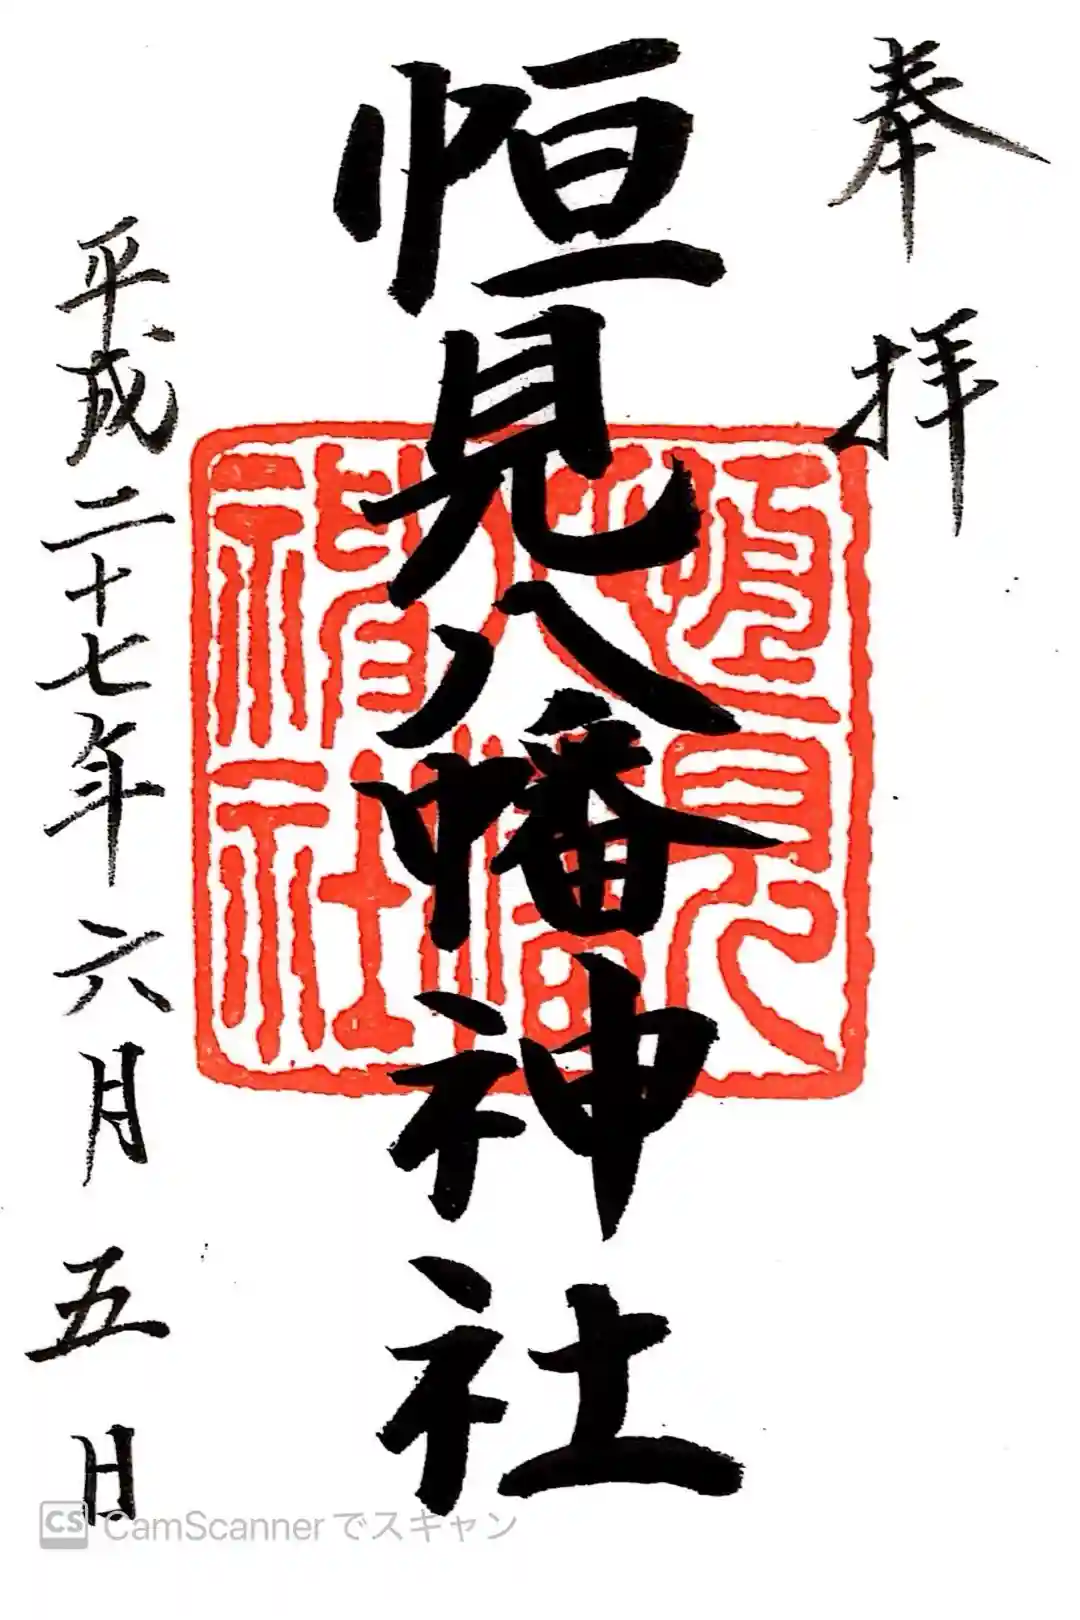 奉拝
恒見八幡神社
恒見
八幡
神社
平成二十七年六月五日
CS CamScannerでスキャン